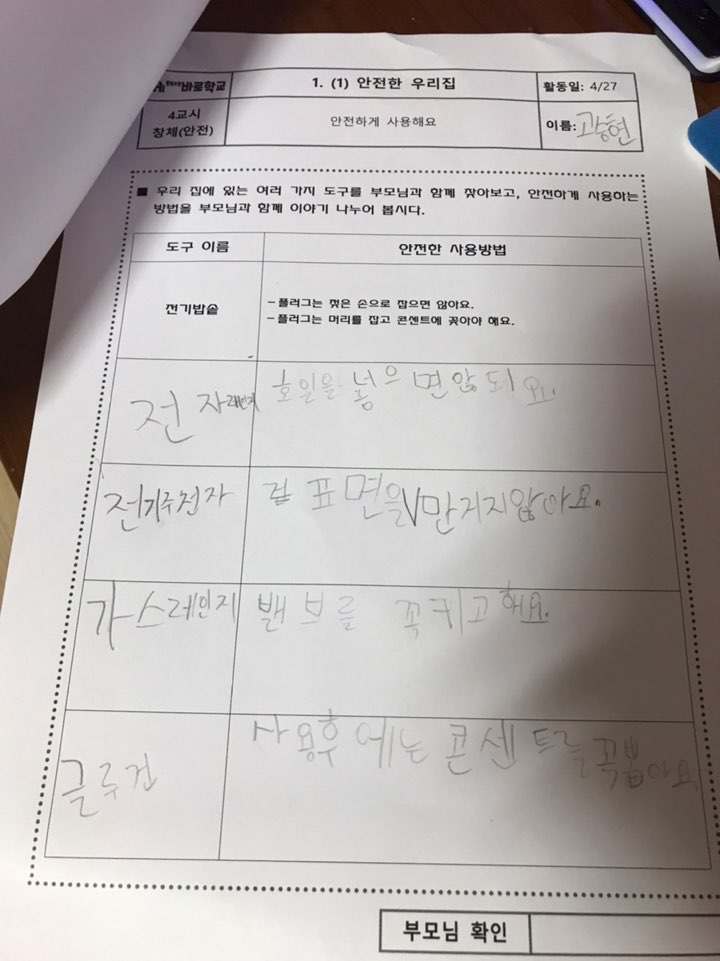 바로학교
1. (1) 안전한 우리집
활동일: 4/27
4교시
창체(안전)
안전하게 사용해요
이름: 광현
■ 우리 집에 있는 여러 가지 도구를 부모님과 함께 찾아보고, 안전하게 사용하는
방법을 부모님과 함께 이야기 나누어 봅시다.
도구 이름
안전한 사용방법
전기밥솥
- 플러그는 젖은 손으로 잡으면 않아요.
- 플러그는 머리를 잡고 콘센트에 꽂아야 해요.
전자레인지
호일을 넣으면않되요.
전기주전자
겉표면을∨만지지않아요.
가스레인지
밸브를 꼭키고해요.
글루건
사용후에는 콘센트를꼭뽑아요
부모님 확인